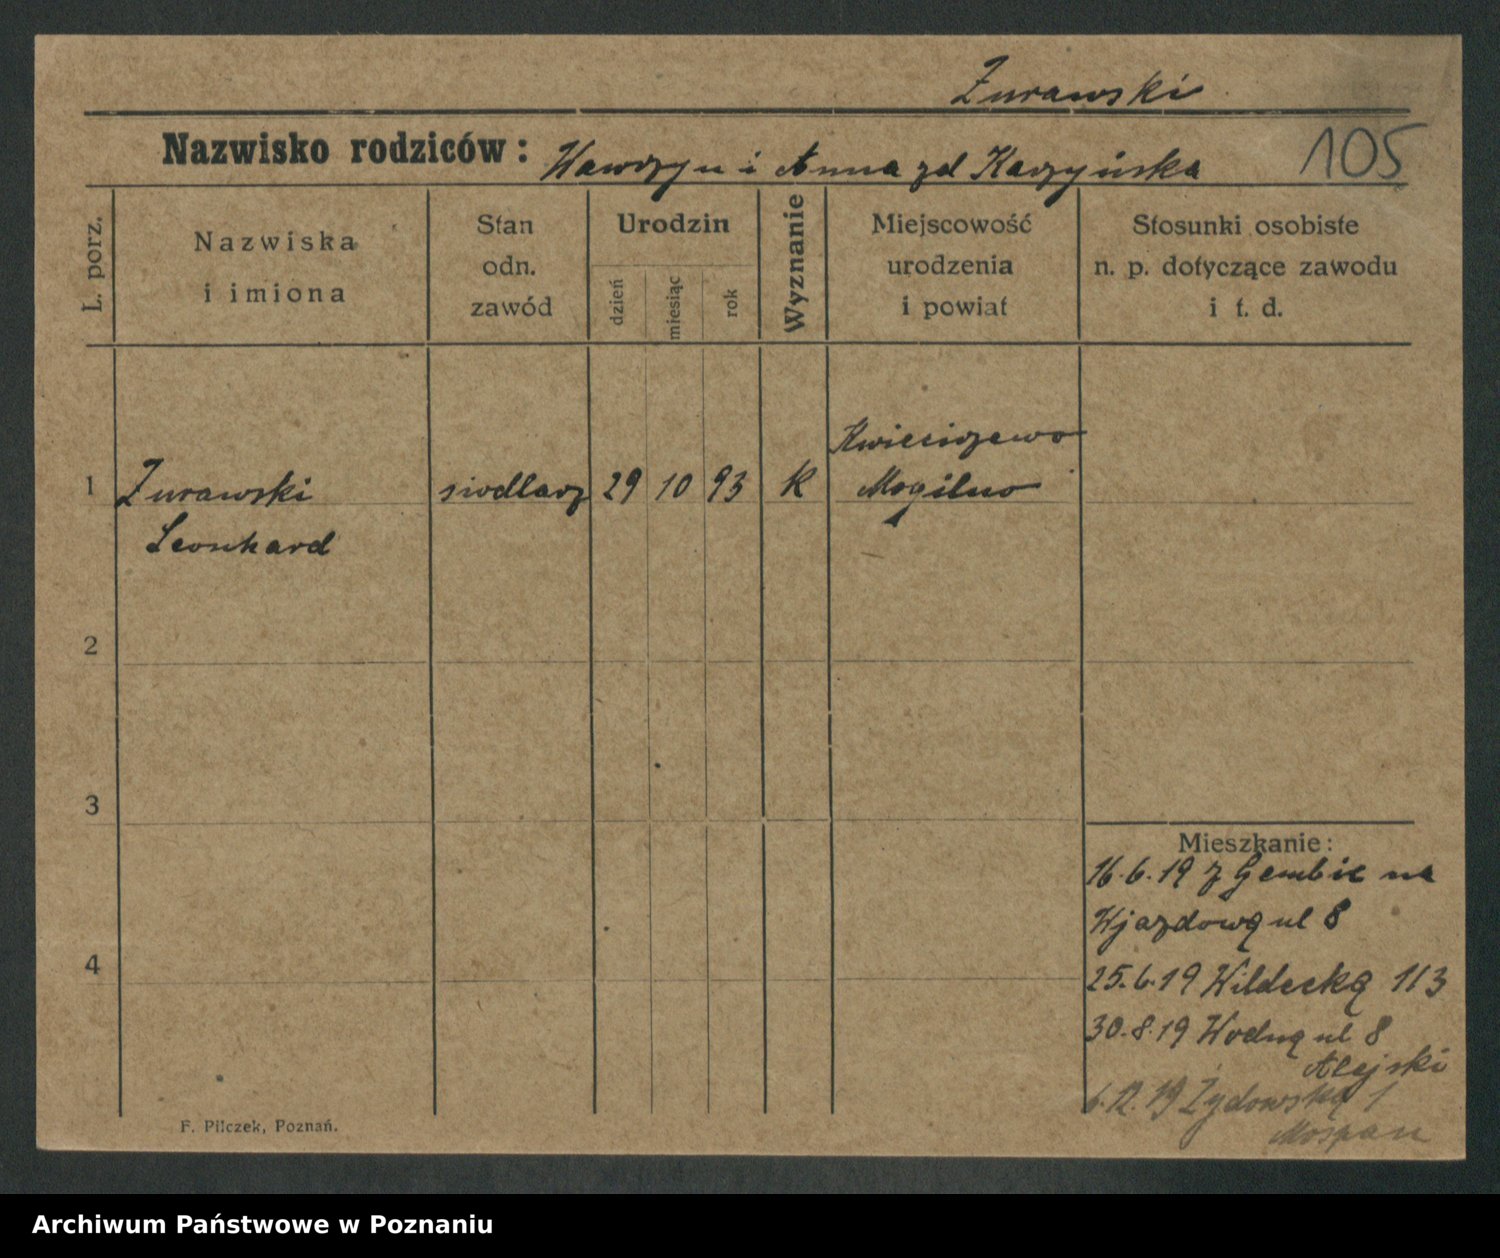 Żurawski
Nazwisko rodziców: Wawrzyn i Anna zd Karzyńska 105
L. porz.
Nazwiska
i imiona
Stan
odn.
zawód
Urodzin
dzień
miesiąc
rok
Wyznanie
Miejscowość
urodzenia
i powiat
Stosunki osobiste
n. p. dotyczące zawodu
i t. d.
Kwieciszewo
1 Żurawski siodlarz 29 10 93 k Mogilno
Leonhard
2
3
4
Mieszkanie:
16.6.19 z Gembic na
Wjazdową ul 8
25.6.19 Wildecką 113
30.8.19 Wodną ul 8
Alejski
6.12.19 Żydowską 1
Mośpan
F. Pilczek, Poznań.
Archiwum Państwowe w Poznaniu